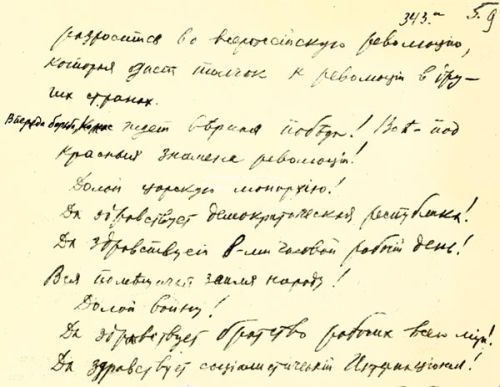 343.а 5.9
разростися во всероссійскую революцію,
которая даст толчок к революціи в дру-
гих странах.
Впереди борьба, ждет верная победа! Все - под
красныя знамена революціи!
Долой царскую монархію!
Да здравствует демократическая республика!
Да здравствует 8-ми часовой рабочій день!
Вся помѣщичья земля народу!
Долой войну!
Да здравствует братство рабочих всего міра!
Да здравствует соціалистическій Интернаціонал!